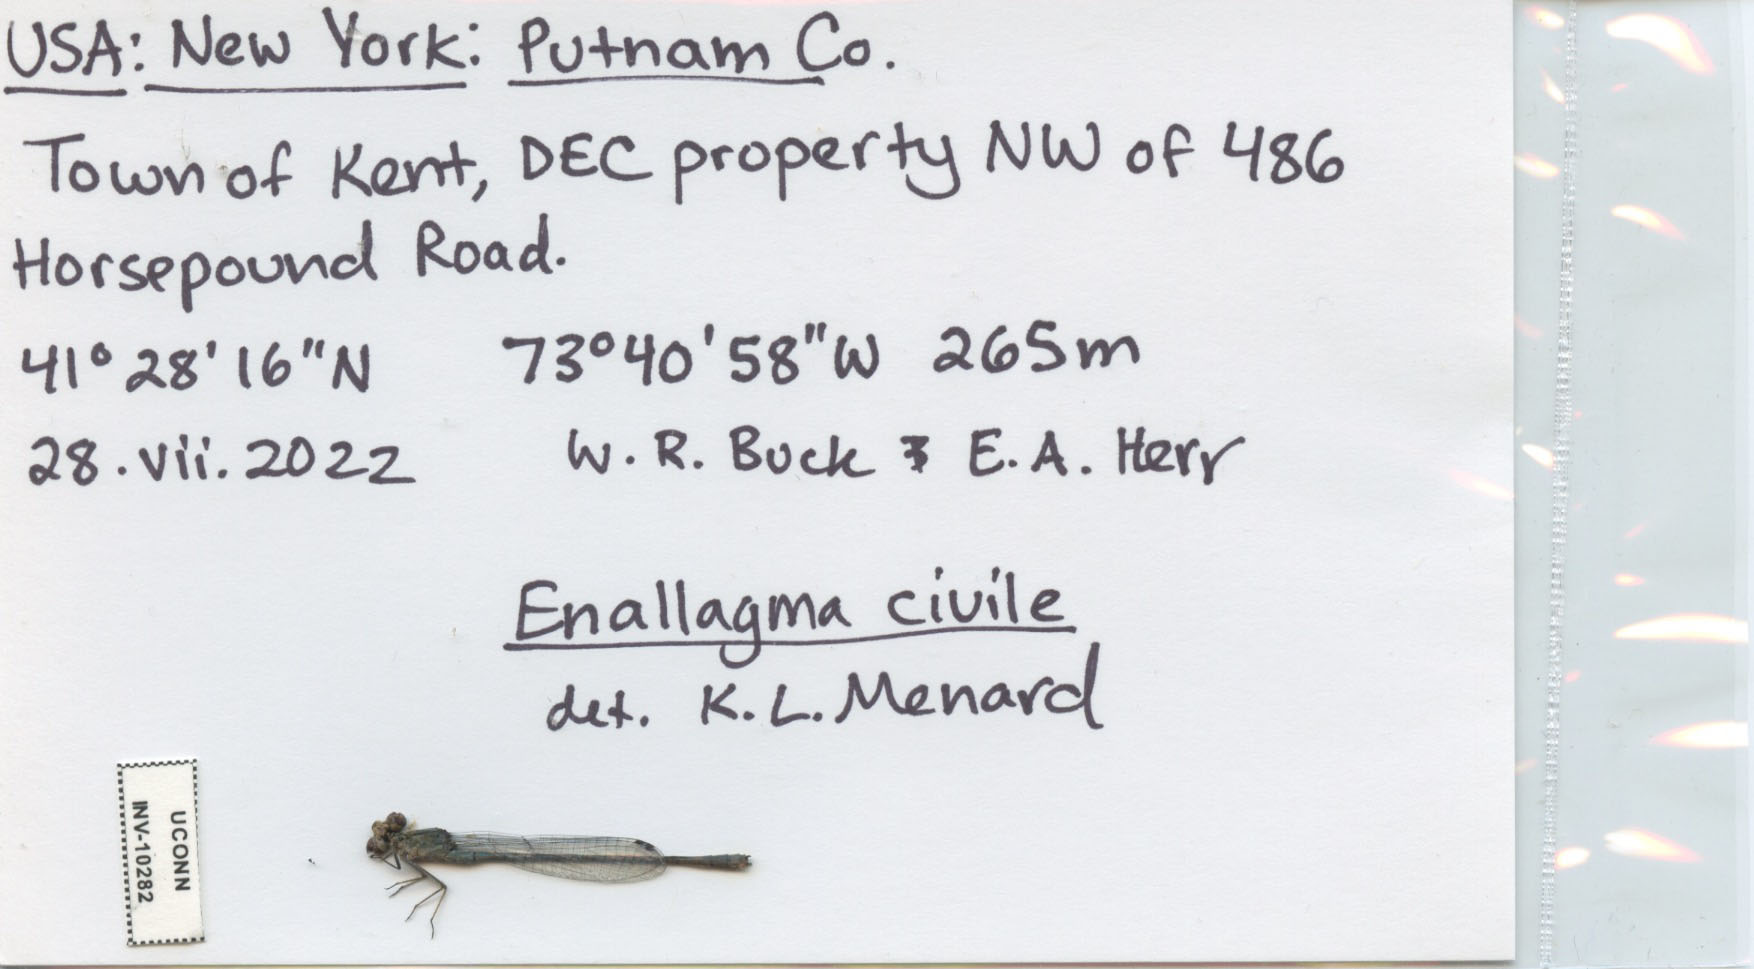 USA: New York: Putnam Co.
Town of Kent, DEC property NW of 486
Horsepound Road.
41° 28' 16" N 73° 40' 58" W 265m
28.vii.2022 W. R. Buck & E. A. Herr
Enallagma civile
det. K. L. Menard
UCONN
INV-10282